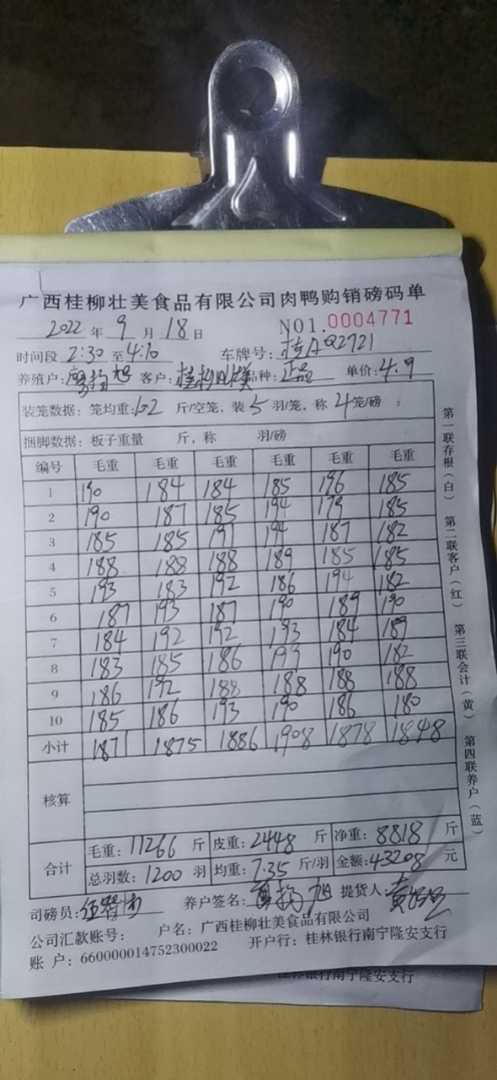 广西桂柳壮美食品有限公司肉鸭购销磅码单
2022 年 9 月 18 日 NO1.0004771
时间段 2:30 至 4:10 车牌号: 桂A Q2721
养殖户: 旭 客户: 品种: 正品 单价: 4.9
装笼数据: 笼均重: 10.2 斤/空笼, 装 5 羽/笼, 称 4 笼/磅 ;
捆脚数据: 板子重量 斤, 称 羽/磅
编号 毛重 毛重 毛重 毛重 毛重 毛重
1 190 184 184 185 196 185
2 190 187 185 194 179 185
3 185 185 191 194 187 182
4 188 188 188 189 185 185
5 193 183 192 186 194 182
6 187 193 187 190 189 190
7 184 192 192 193 184 189
8 183 185 186 199 190 182
9 186 192 188 188 188 188
10 185 186 193 190 186 180
小计 1871 1875 1886 1908 1878 1848
核算
合计 毛重: 11266 斤 皮重: 2448 斤 净重: 8818 斤
总羽数: 1200 羽 均重: 7.35 斤/羽 金额: 43208 元
司磅员: 养户签名: 旭 提货人:
公司汇款账号: 户名: 广西桂柳壮美食品有限公司
账 户: 660000014752300022 开户行: 桂林银行南宁隆安支行
桂林银行南宁隆安支行
第一联存根(白) 第二联客户(红) 第三联会计(黄) 第四联养户(蓝)